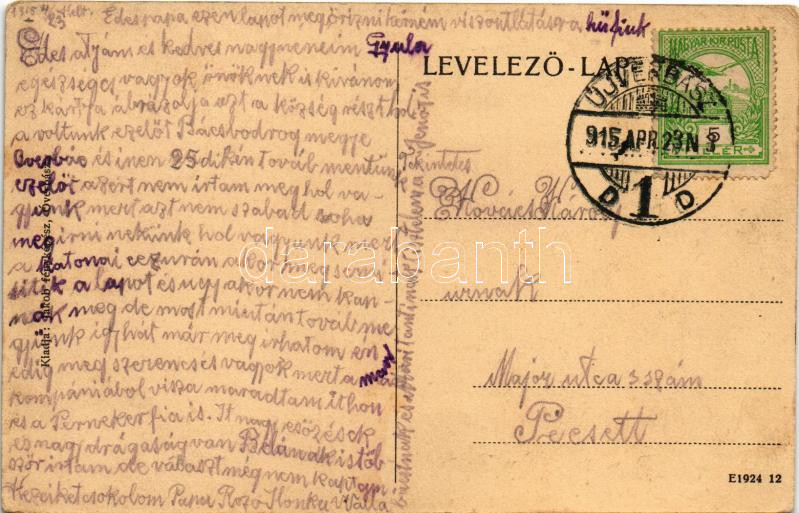 1915 4/23
Édes papa ezen lapot megőrizni kérném viszontlátásra hűfiuk
Édes atyám es kedves nagyneneim Gyula
egeszseges vagyok önöknek is kivánom
ez kártya abrázolja azt a község részt hol
a voltunk ezelöt Bácsbodrog megye
Overbász es inen 25 dikén továb mentünk
ezelöt azert nem irtam meg hol va-
gyunk mert azt nem szabad soha
megirni nekünk hol vagyunk mert
a katonai cezurán akor megsemi
sitik a lapot és ugyakor nem kap-
nak meg de most miután továb me
gyünk igy hát már meg irhatom én
edig meg szerencsés vagyok mert a
kompániából visza maradtam ithon
es a Pernekerfia is. It nagy esözések
es nagy drágaság van Bélának is töb
ször irtam de választ meg nem kaptam
Kezeiket csokolom Papa Rozo Ilonka
LEVELEZŐ-LAP
MAGYAR KIR. POSTA
5
FILLÉR
ÚJVERBÁSZ
915 APR. 23 N
D 1 D
Tekintetes
Kovács Károly
urnak
Major utca 3 szám
Pécsett
E1924 12
Kiadja: Jakob fényképész, Óverbász
darabanth